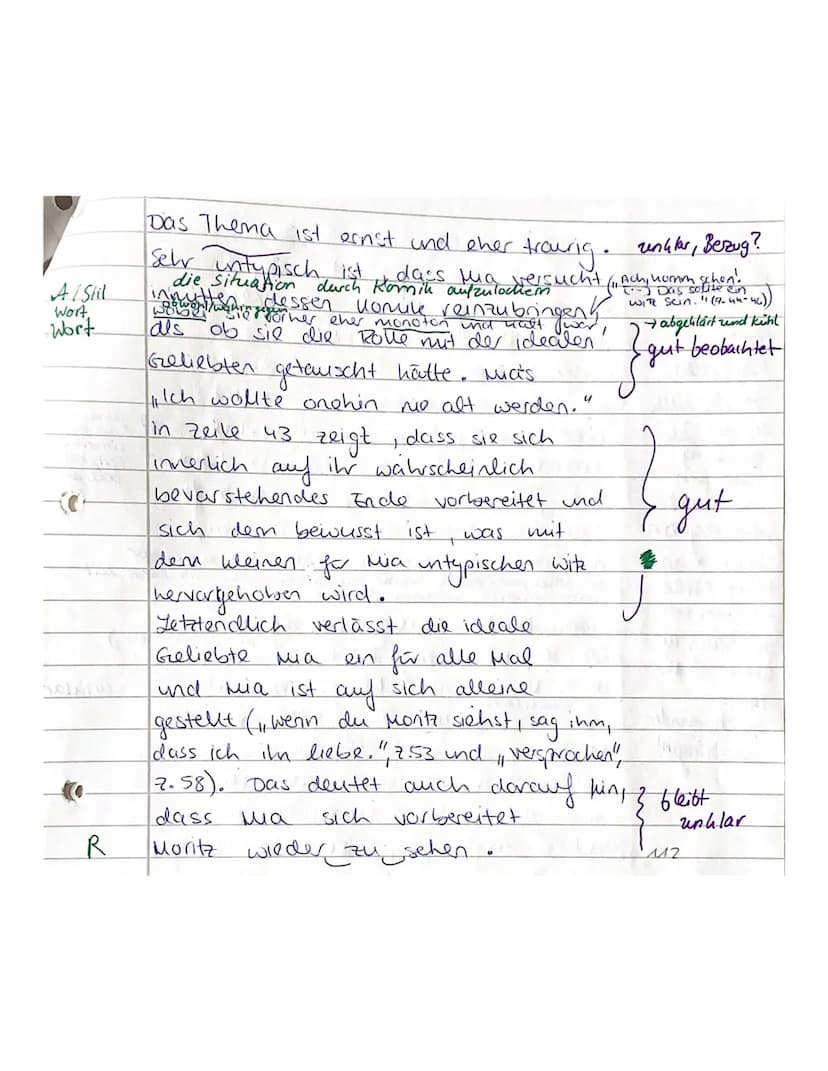 Das Thema ist ernst und eher traurig. unklar, Bezug?
Sehr untypisch ist, dass Mia versucht („Ach komm schon!
(...) Das sollte ein
Witz sein." (Z. 44-46))
die Situation durch Komik aufzulockern
A/Stil
inmitten dessen Komik reinzubringen,
Wort
obwohl/wohingegen
wobei sie vorher eher monoton und kalt war,
→ abgeklärt und kühl
Wort
als ob sie die Rolle mit der idealen
gut beobachtet
Geliebten getauscht hätte. Mia's
„Ich wollte onehin nie alt werden."
in Zeile 43 zeigt, dass sie sich
innerlich auf ihr wahrscheinlich
bevorstehendes Ende vorbereitet und
gut
sich dem bewusst ist, was mit
dem kleinen für Mia untypischen Witz
hervorgehoben wird.
Letztendlich verlässt die ideale
Geliebte Mia ein für alle Mal
und Mia ist auf sich alleine
gestellt („Wenn du Moritz siehst, sag ihm,
dass ich ihn liebe.", Z.53 und „versprochen",
Z.58). Das deutet auch darauf hin,
bleibt
unklar
dass Mia sich vorbereitet
R Moritz wieder zu sehen.